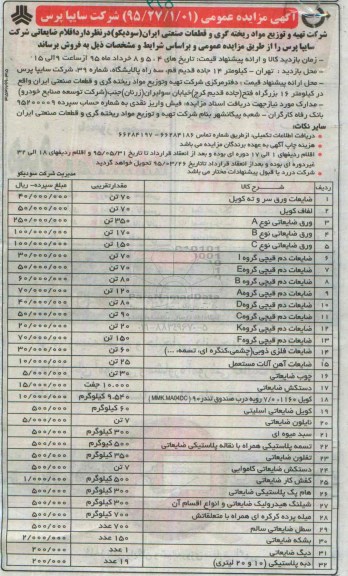 آگهی مزایده عمومی (۹۵/۲۷/۱/۰۱) شرکت سایپا پرس
شرکت تهیه و توزیع مواد ریخته گری و قطعات صنعتی ایران(سودیکو)درنظردارداقلام ضایعاتی شرکت
سایپا پرس را از طریق مزایده عمومی و براساس شرایط و مشخصات ذیل به فروش برساند
- زمان بازدید کالا و ارائه پیشنهاد قیمت، تاریخ های ۴، ۵ و ۸ خرداد ماه ۹۵ ازساعت ۹الی ۱۵.
- محل بازدید : تهران – کیلومتر ۱۴ جاده قدیم قم، سه راه پالایشگاه، شماره ۳۹، شرکت سایپا پرس
- محل ارائه پیشنهاد قیمت : دفترمرکزی شرکت تهیه وتوزیع مواد ریخته گری و قطعات صنعتی ایران واقع
در کیلومتر ۱۶ بزرگراه فتح(جاده قدیم کرج)خیابان سولیران(زرنان)جنب(شرکت توسعه صنایع خودرو)
- مدارک مورد نیازجهت دریافت اسناد مزایده، فیش واریز نقدی به شماره حساب سپرده ۹۵۲۰۰۰۰۹
بانک رفاه کارگران – شعبه پیکانشهر بنام شرکت تهیه و توزیع مواد ریخته گری و قطعات صنعتی ایران
سایر نکات:
- دریافت اطلاعات تکمیلی، ازطریق شماره تماس ۶۶۲۸۴۱۸۶ – ۶۶۲۸۴۱۹۷
- هزینه چاپ آگهی به عهده برندگان مزایده می باشد
- اقلام ردیفهای ۱ الی ۱۷ دوره ای بوده و بعد از انعقاد قرارداد تا تاریخ ۹۵/۰۵/۳۱ و اقلام ردیفهای ۱۸ الی ۳۲
غیردوره ای بوده و بعداز انعقاد قرارداد تاتاریخ ۹۵/۰۳/۲۶ تحویل خواهد گردید
- شرکت دررد یا قبول پیشنهادات مختار می باشد
مدیریت شرکت سودیکو
ردیف شــرح کالا مقدارتقریبی مبلغ سپرده- ریال
۱ ضایعات ورق سر و ته کویل ۷۰ تن ۴۰/۰۰۰/۰۰۰
۲ لفاف کویل ۷۰ تن ۵۰/۰۰۰/۰۰۰
۳ ورق ضایعاتی نوع A ۳۵۰ تن ۲۵۰/۰۰۰/۰۰۰
۴ ورق ضایعاتی نوع B ۱۷۰ تن ۱۰۰/۰۰۰/۰۰۰
۵ ورق ضایعاتی نوع C ۱۵۰ تن ۱۰۰/۰۰۰/۰۰۰
۶ ضایعات دم قیچی گروه I ۷۰ تن ۳۰/۰۰۰/۰۰۰
۷ ضایعات دم قیچی گروهE ۷۰ تن ۵۰/۰۰۰/۰۰۰
۸ ضایعات دم قیچی گروه B ۸۰ تن ۶۰/۰۰۰/۰۰۰
۹ ضایعات دم قیچی گروهA ۱۲۰ تن ۷۰/۰۰۰/۰۰۰
۱۰ ضایعات دم قیچی گروهD ۸۰ تن ۴۰/۰۰۰/۰۰۰
۱۱ ضایعات دم قیچی گروهC ۹۰ تن ۵۰/۰۰۰/۰۰۰
۱۲ ضایعات دم قیچی گروهK ۲۰ تن ۲۰/۰۰۰/۰۰۰
۱۳ ضایعات دم قیچی گروهF ۱۵۰ تن ۷۰/۰۰۰/۰۰۰
۱۴ ضایعات فلزی ذوبی(چشمی،کنگره ای، تسمه، ...) ۶۰ تن ۳۰/۰۰۰/۰۰۰
۱۵ ضایعات آهن آلات مستعمل ۲۵ تن ۱۰/۰۰۰/۰۰۰
۱۶ چوب ضایعاتی ۳۰ تن ۵/۰۰۰/۰۰۰
۱۷ دستکش ضایعاتی ۱۰.۰۰۰ جفت ۱۵/۰۰۰/۰۰۰
۱۸ کویل ۱۱۶۰*۰/۷ رویه درب صندوق تندر۹۰ (MMK.MA04DC) ۹.۵۴۰ کیلوگرم ۱۰/۰۰۰/۰۰۰
۱۹ کویل ضایعاتی اسلیتی ۶۰ کیلوگرم ۵۰۰/۰۰۰
۲۰ نایلون ضایعاتی ۷ تن ۵/۰۰۰/۰۰۰
۲۱ سبد میوه ای ۳۰۰ کیلوگرم ۵۰۰/۰۰۰
۲۲ تسمه پلاستیکی همراه با نقاله پلاستیکی ضایعاتی ۵۰۰ کیلوگرم ۵۰۰/۰۰۰
۲۳ تفلون ضایعاتی ۳۵۰ کیلوگرم ۵۰۰/۰۰۰
۲۴ دستکش ضایعاتی کاموایی ۷ تن ۵۰۰/۰۰۰
۲۵ کفش کار ضایعاتی ۵۰۰ کیلوگرم ۱/۰۰۰/۰۰۰
۲۶ هام پک پلاستیکی ضایعاتی ۳۰۰ کیلوگرم ۵۰۰/۰۰۰
۲۷ شیلنگ هیدرولیک ضایعاتی و انواع اقسام آن ۳۰۰ کیلوگرم ۵۰۰/۰۰۰
۲۸ میله پرده کرکره ای همراه با متعلقاتش ۷۰۰ کیلوگرم ۵۰۰/۰۰۰
۲۹ سطل ضایعاتی سالم ۷۰۰ عدد ۵۰۰/۰۰۰
۳۰ بشکه ضایعاتی ۱۵۰ عدد ۲/۰۰۰/۰۰۰
۳۱ دیگ ضایعاتی ۱ عدد ۲۰۰/۰۰۰
۳۲ دبه پلاستیکی (۱۰ و ۲۰ لیتری) ۱۹ عدد ۲۰۰/۰۰۰